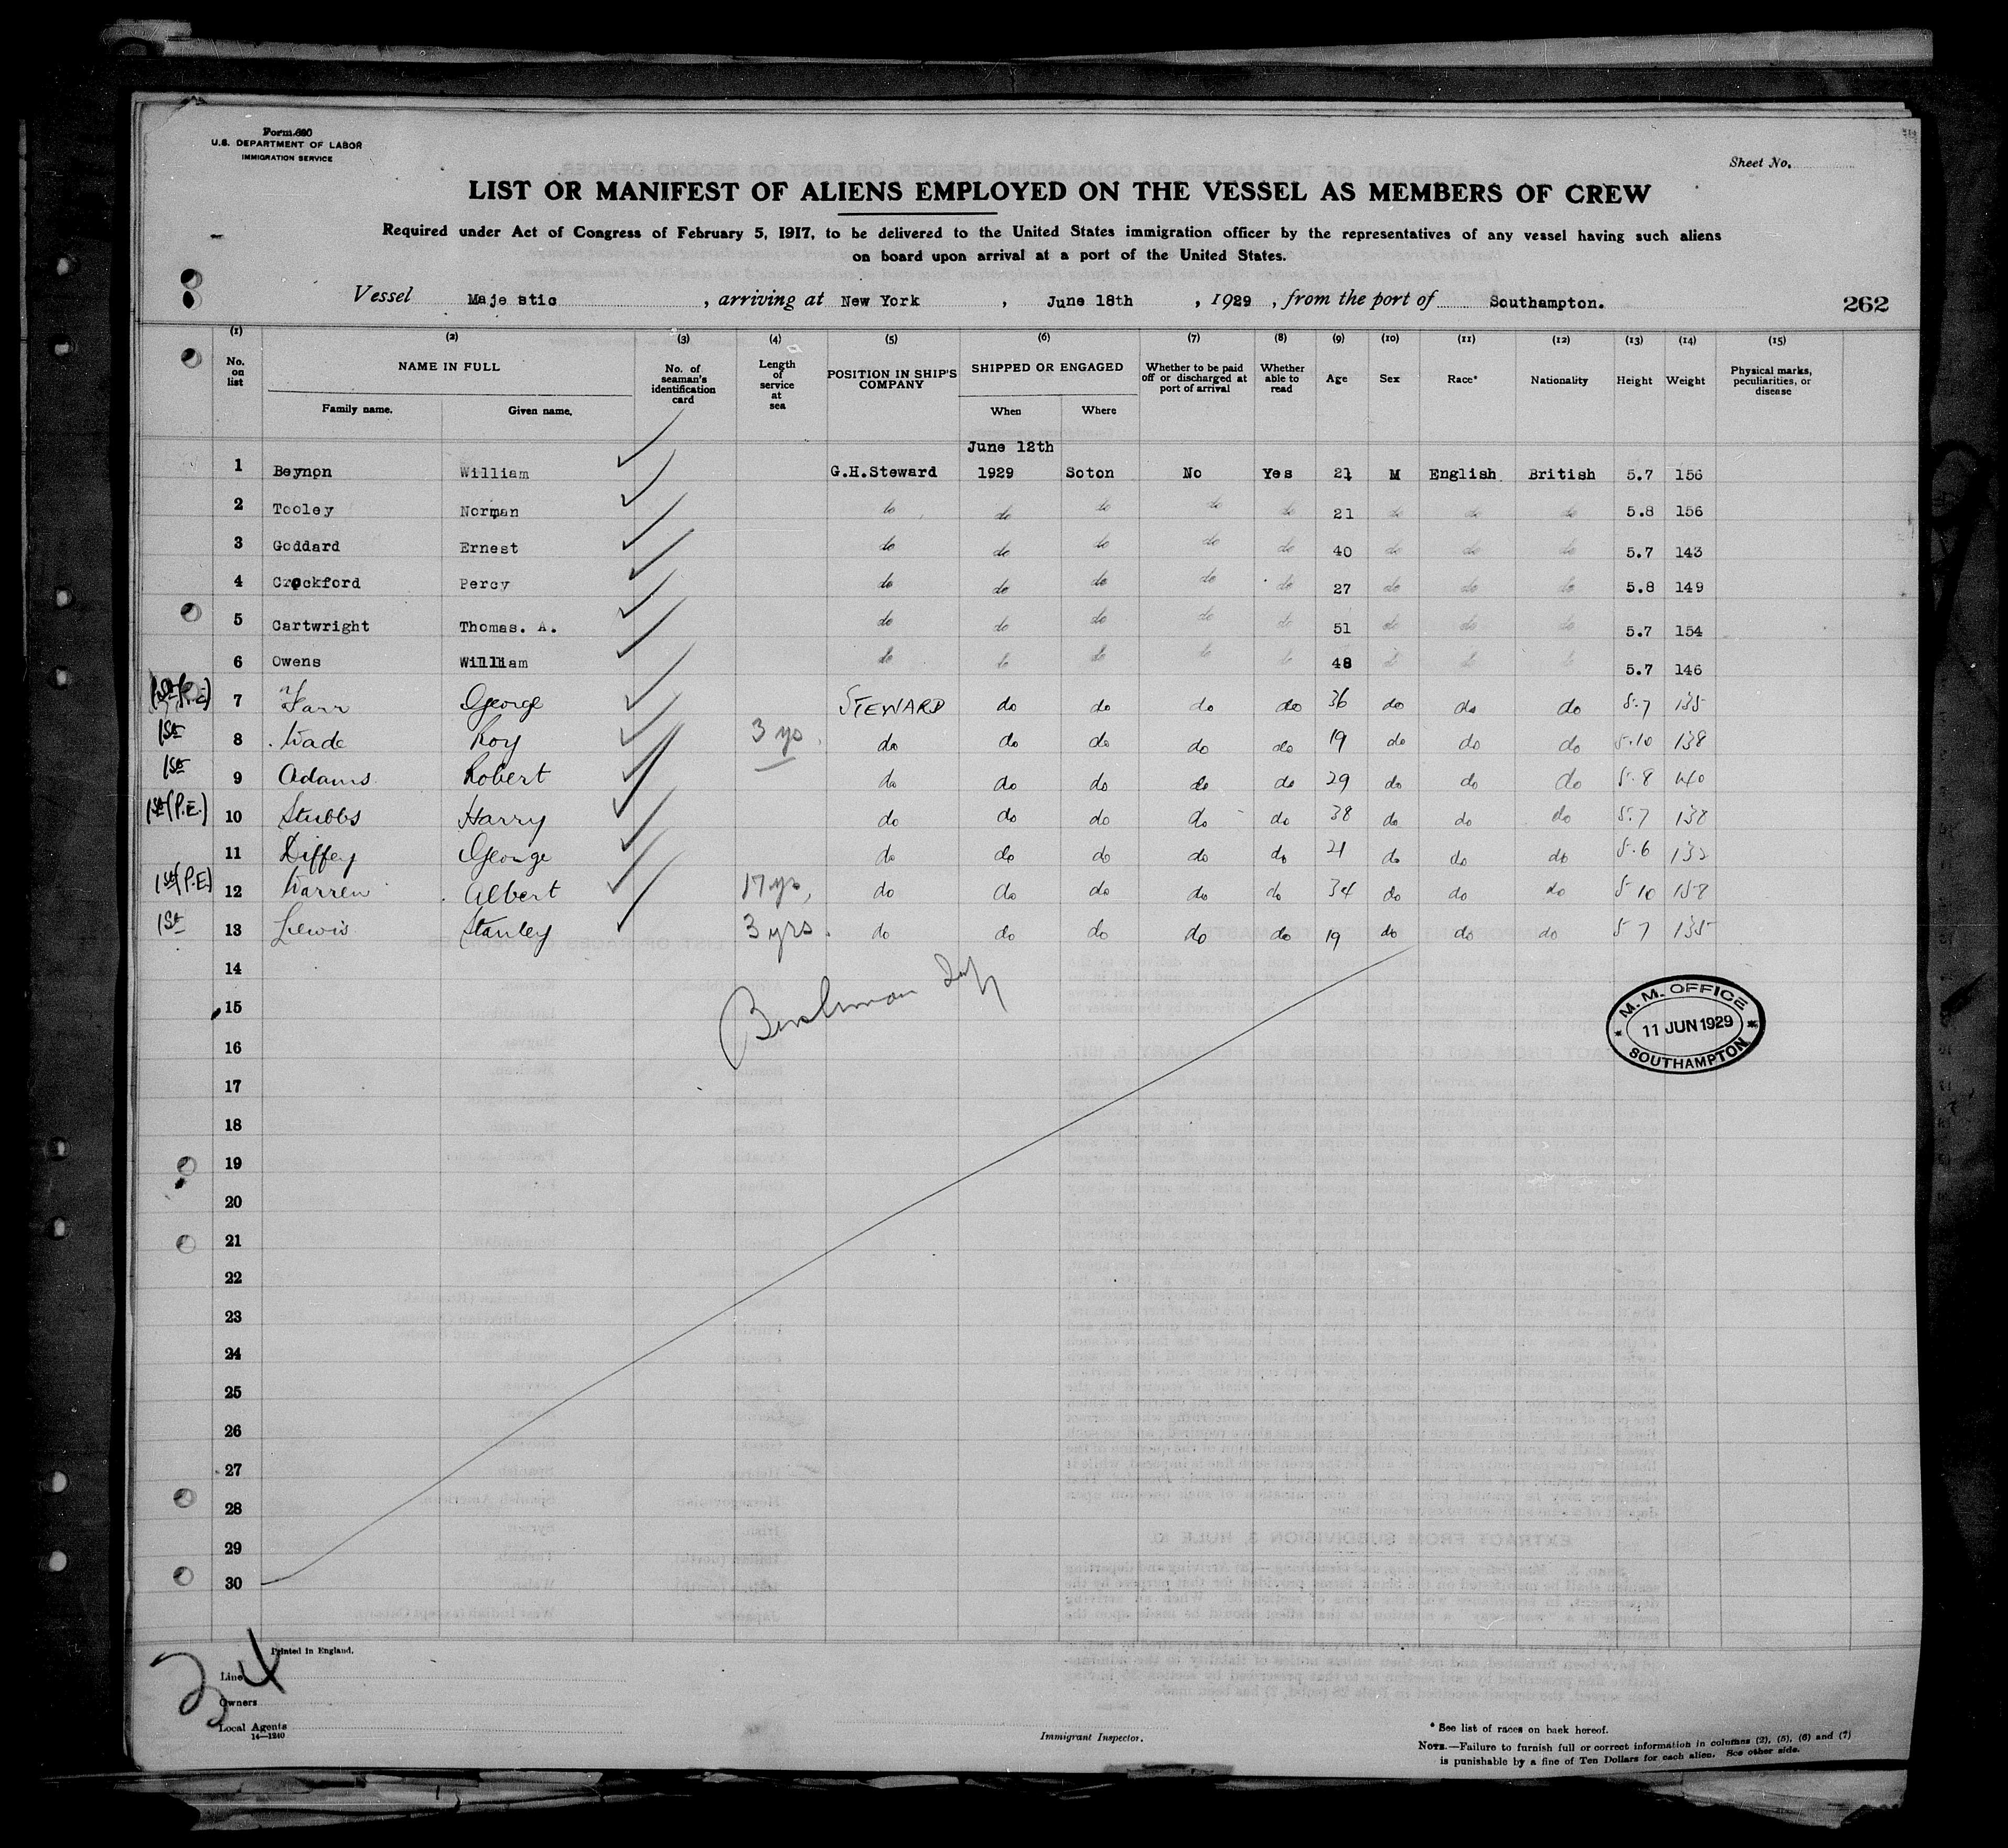 Form 680
U.S. DEPARTMENT OF LABOR
IMMIGRATION SERVICE
Sheet No.
LIST OR MANIFEST OF ALIENS EMPLOYED ON THE VESSEL AS MEMBERS OF CREW
Required under Act of Congress of February 5, 1917, to be delivered to the United States immigration officer by the representatives of any vessel having such aliens
on board upon arrival at a port of the United States.
Vessel Majestic, arriving at New York, June 18th, 1929, from the port of Southampton.
262
(1) (2) (3) (4) (5) (6) (7) (8) (9) (10) (11) (12) (13) (14) (15)
No. on list NAME IN FULL Family name. Given name. No. of seaman's identification card Length of service at sea POSITION IN SHIP'S COMPANY SHIPPED OR ENGAGED When Where Whether to be paid off or discharged at port of arrival Whether able to read Age Sex Race* Nationality Height Weight Physical marks, peculiarities, or disease
June 12th
1 Beynon William G.H.Steward 1929 Soton No Yes 21 M English British 5.7 156
2 Tooley Norman do do do do do 21 do do do 5.8 156
3 Goddard Ernest do do do do do 40 do do do 5.7 143
4 Crockford Percy do do do do do 27 do do do 5.8 149
5 Cartwright Thomas. A. do do do do do 51 do do do 5.7 154
6 Owens William do do do do do 48 do do do 5.7 146
1st (P.E) 7 Farr George STEWARD do do do do 36 do do do 5.7 135
1st 8 Wade Roy 3 ys. do do do do do 19 do do do 5.10 138
1st 9 Adams Robert do do do do do 29 do do do 5.8 140
1st (P.E.) 10 Stubbs Harry do do do do do 38 do do do 5.7 138
11 Diffey George do do do do do 21 do do do 5.6 132
1st (P.E) 12 Warren Albert 17 ys, do do do do do 34 do do do 5 10 158
1st 13 Lewis Stanley 3 yrs. do do do do do 19 do do do 5 7 135
14
15
16
17
18
19
20
21
22
23
24
25
26
27
28
29
30
M.M. OFFICE
11 JUN 1929
SOUTHAMPTON
Printed in England.
24
Line
Owners
Local Agents
14—1240
Immigrant Inspector.
* See list of races on back hereof.
NOTE.—Failure to furnish full or correct information in columns (2), (5), (6) and (7)
is punishable by a fine of Ten Dollars for each alien. See other side.